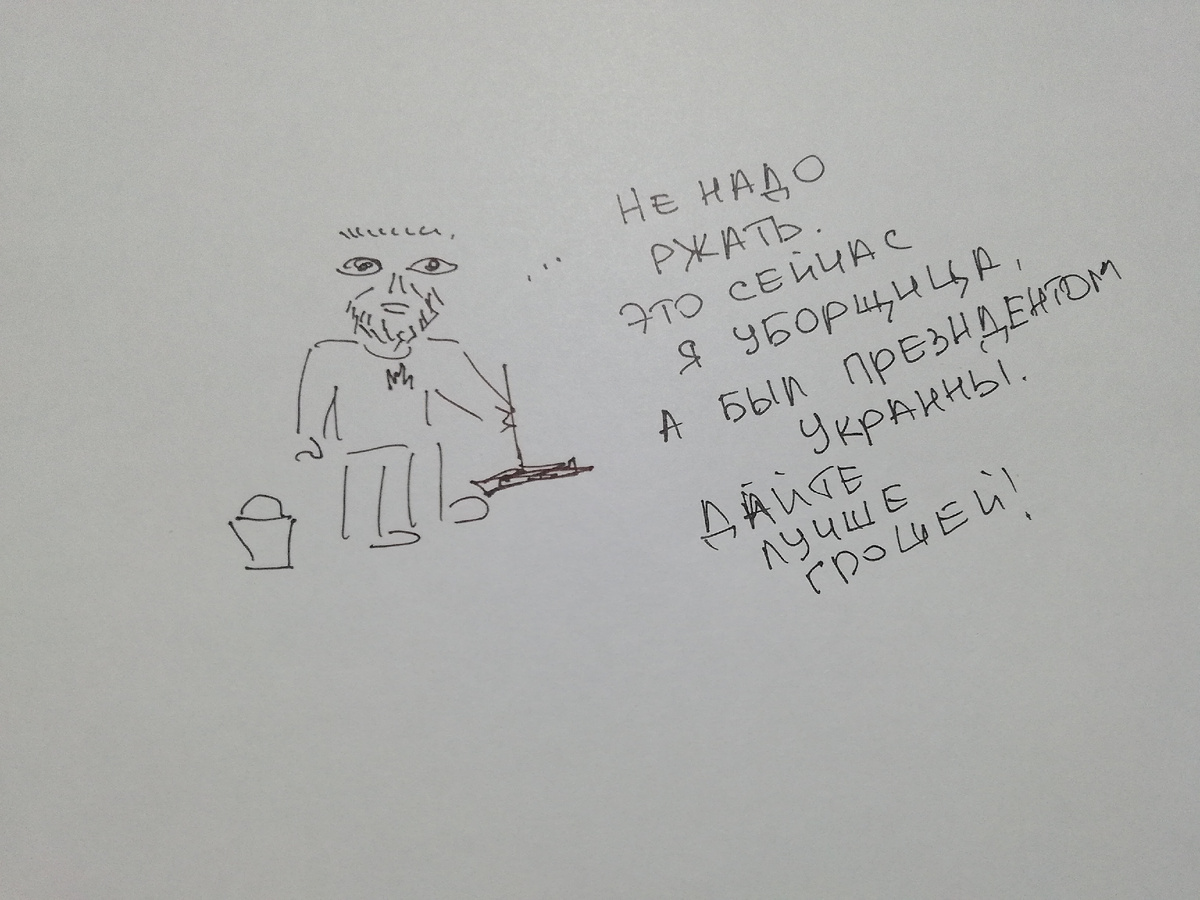 ...
НЕ НАДО
РЖАТЬ.
ЭТО СЕЙЧАС
Я УБОРЩИЦА,
А БЫЛ ПРЕЗИДЕНТОМ
УКРАИНЫ.
ДАЙТЕ
ЛУЧШЕ
ГРОШЕЙ!